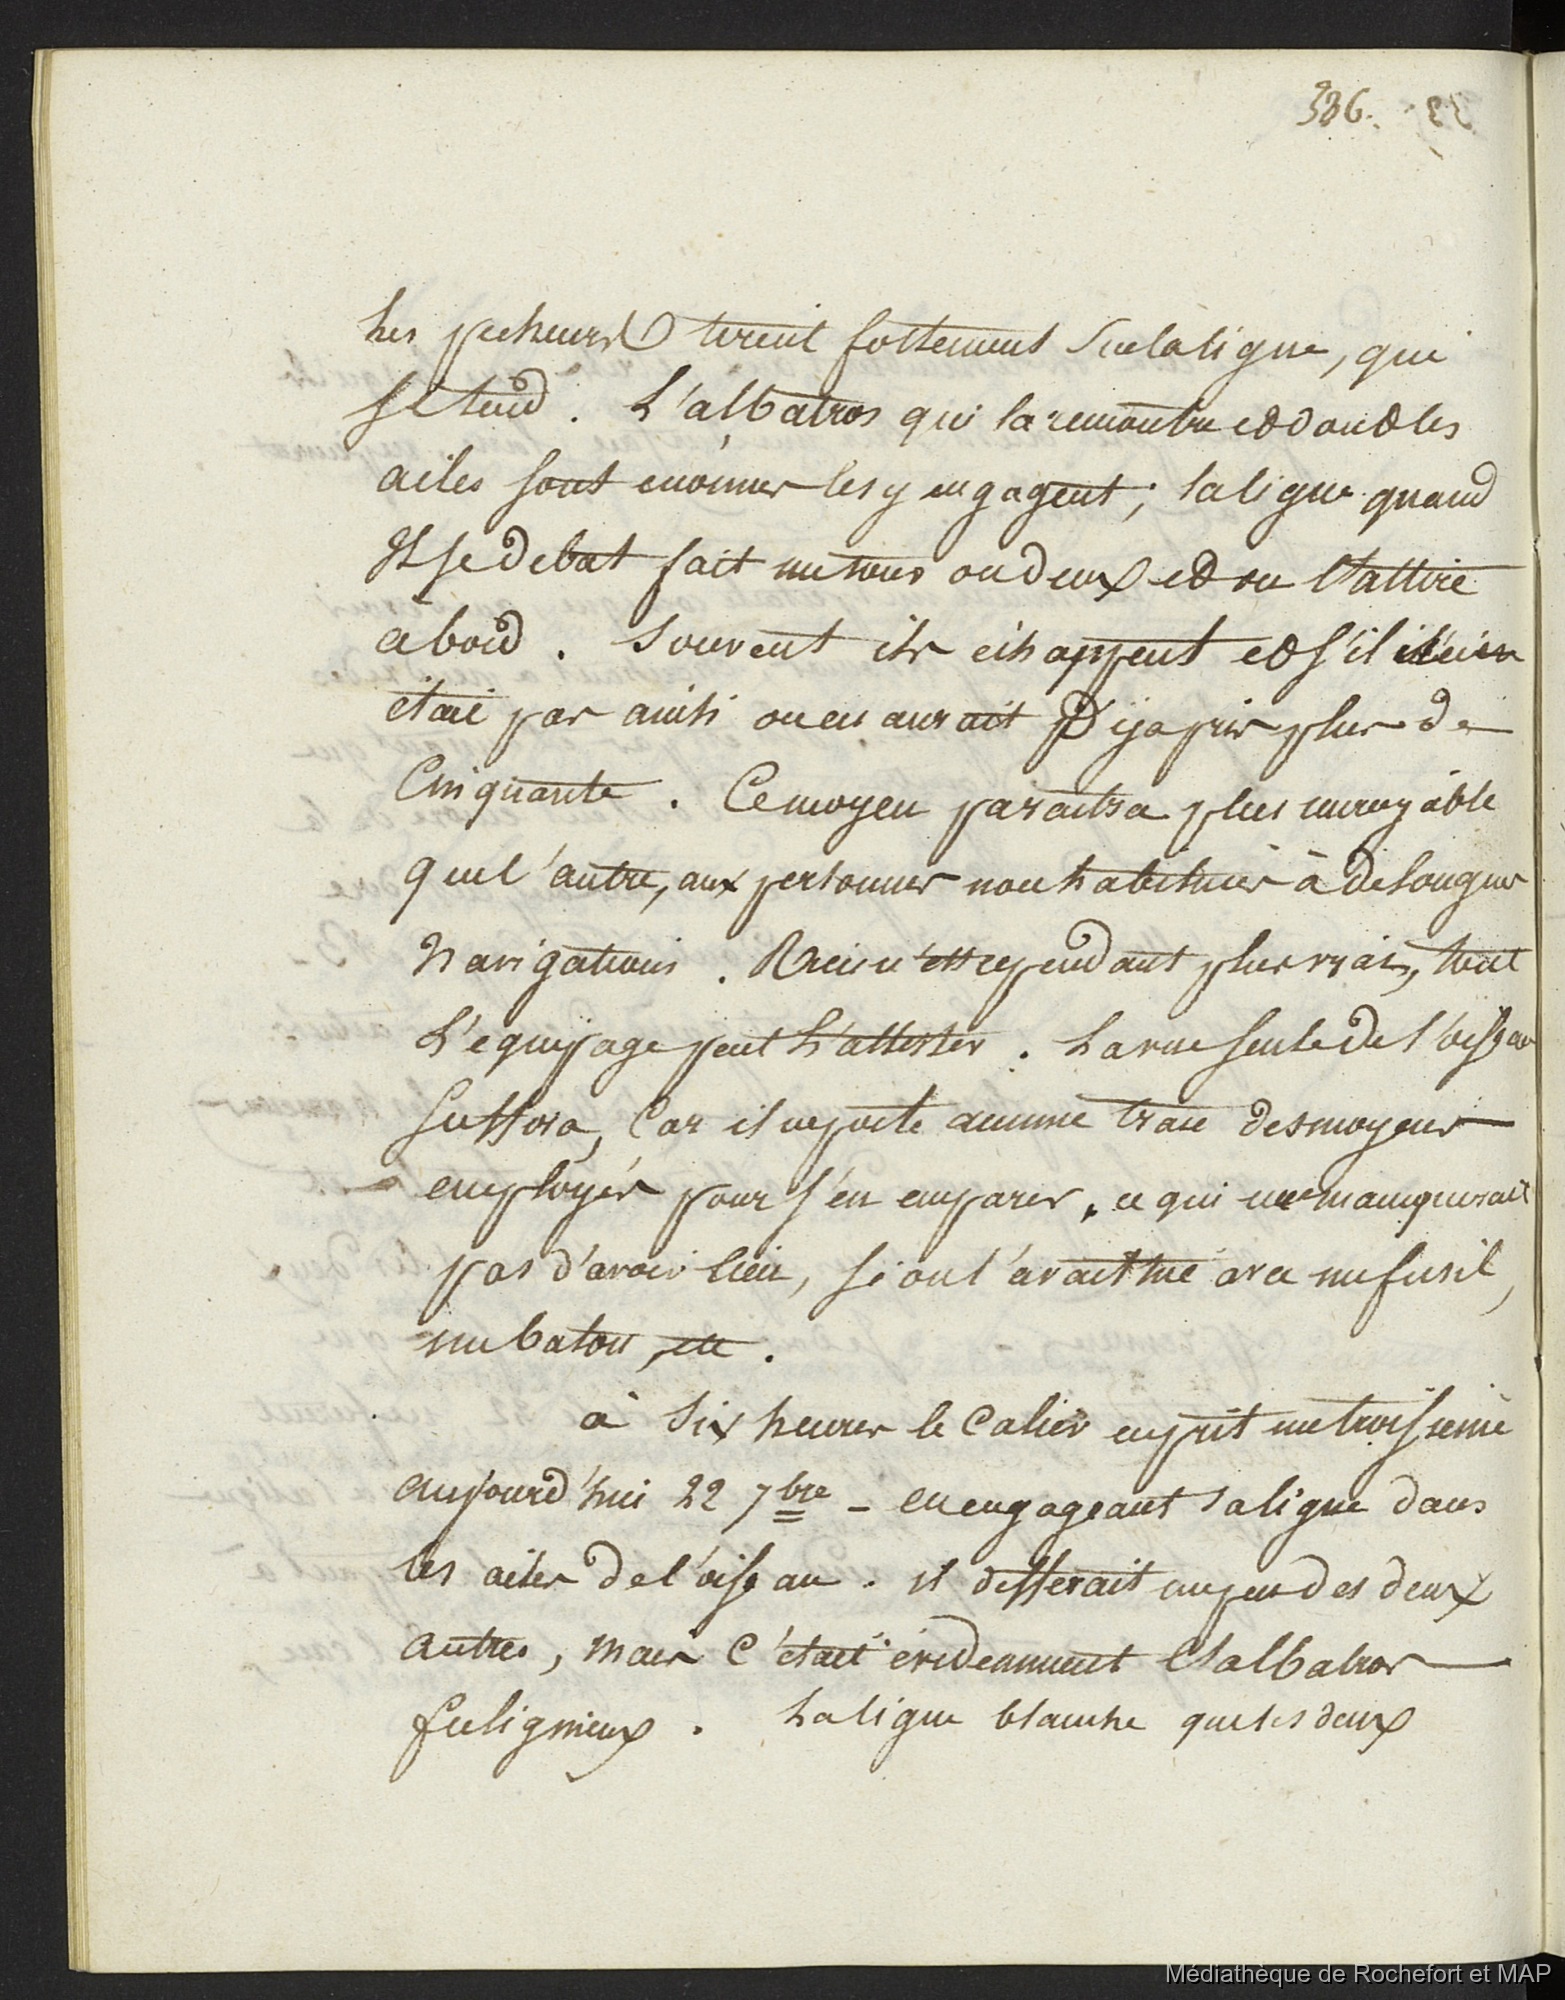 386.
Les pecheurs tirent fortement sur la ligne, qui
se tend. L'albatros qui la rencontre et dont les
ailes sont enormes les y engagent; la ligne quand
Il se debat fait un tour ou deux et on l'attire
a bord. Souvent ils échappent et s'il n'en
était pas ainsi on en aurait Déja pris plus de
Cinquante. Ce moyen paraitra plus incroyable
que l'autre, aux personnes non habituées à de longues
Navigations. Rien n'est cependant plus vrai, tout
L'equipage peut L'attester. La vue seule de l'oiseau
suffira, Car il ne porte aucune trace des moyens
employés pour s'en emparer, ce qui ne manquerait
pas d'avoir lieu, si on l'avait tué avec un fusil,
un baton, etc.
à Six heures le Calier en prit un troisieme
aujourd'hui 22 7bre - en engageant la ligne dans
les ailes de l'oiseau. il differait un peu des deux
autres, Mais C'était évidemment L'albatros
fuligineux. La ligne blanche que les deux
Médiathèque de Rochefort et MAP